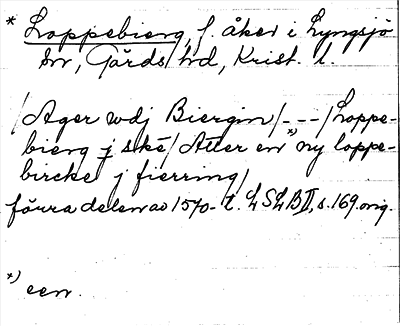 * Loppebierg, f. åker i Lyngsjö
sn, Gärds hd, Krist. l.
/Ager wdj Biergin/---/Loppe-
bierg j skè/Atter en *) ny loppe-
bircke j fierring/
förra delen av 1570-t. LSLB II, s. 169. orig.
*) een.